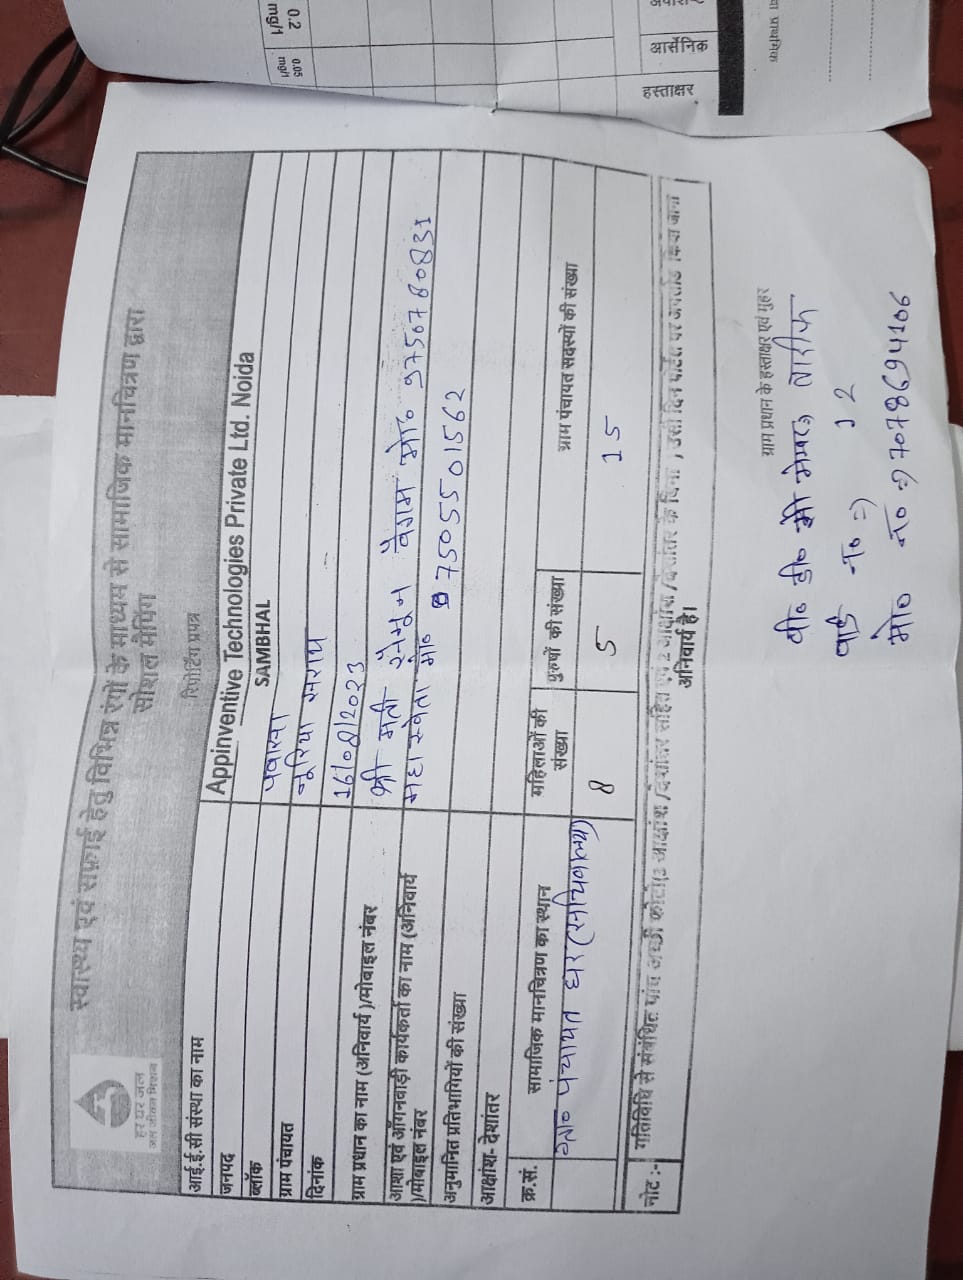 हर घर जल
जल जीवन मिशन
स्वास्थ्य एवं सफ़ाई हेतु विभिन्न रंगों के माध्यम से सामाजिक मानचित्रण द्वारा
सोशल मैपिंग
रिपोर्टिंग प्रपत्र
आई.ई.सी संस्था का नाम Appinventive Technologies Private Ltd. Noida
जनपद SAMBHAL
ब्लॉक पवासा
ग्राम पंचायत नूरिया सराय
दिनांक 16/08/2023
ग्राम प्रधान का नाम (अनिवार्य )/मोबाइल नंबर श्री मती रैमून बेगम मो० 9750780831
आशा एवं आँगनवाड़ी कार्यकर्ता का नाम (अनिवार्य महा स्वेता मो० 7505501562
)/मोबाइल नंबर
अनुमानित प्रतिभागियों की संख्या
आक्षांश- देशांतर
क्र.सं. सामाजिक मानचित्रण का स्थान महिलाओं की संख्या पुरुषों की संख्या ग्राम पंचायत सदस्यों की संख्या
ग्रा० पंचायत घर (सचिवालय) 8 5 15
नोट :- गतिविधि से संबंधित पांच अच्छी फोटो आक्षांश /देशांतर सहित
अनिवार्य है।
ग्राम प्रधान के हस्ताक्षर एवं मुहर
वी० डी० सी मेम्बर
वार्ड न० => 12
मो० न० => 97078694106
0.2
mg/l
0.05
mg/l
आर्सेनिक
हस्ताक्षर